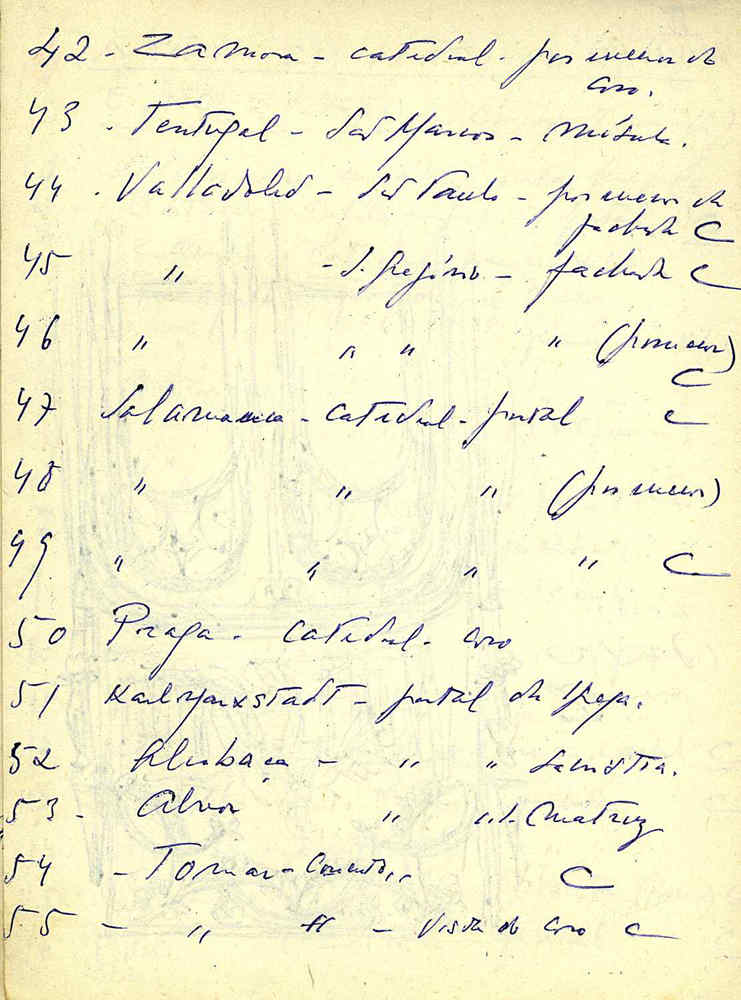 42 - Zamora - catedral - pormenor do
coro.
43 . Tentugal - São Marcos - mísula.
44 . Valladolid - São Paulo - pormenor da
fachada C
45 " - S. Gregório - fachada C
46 " " " " (pormenor)
C
47 Salamanca - catedral - portal C
48 " " " (pormenor)
49 " " " " C
50 Praga - catedral - coro
51 Karlmarxstadt - portal da Igreja.
52 Alcobaça - " " sacristia.
53 - Alvor " " I. Matriz
54 - Tomar - Convento, C
55 - " " - Vista do coro C